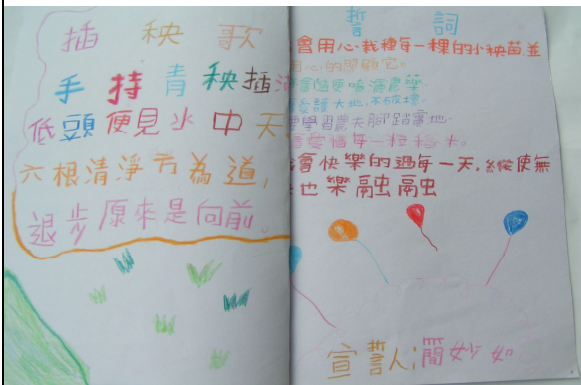 插秧歌
手持青秧插
低頭便見水中天
六根清淨方為道,
退步原來是向前。
誓詞
會用心栽種每一棵的小秧苗,並
用心的照顧它。
會隨便噴灑農藥。
愛護大地,不破壞。
學習農夫腳踏實地。
會愛惜每一粒稻米。
會快樂的過每一天,縱使無
也樂融融
宣誓人:簡妙如